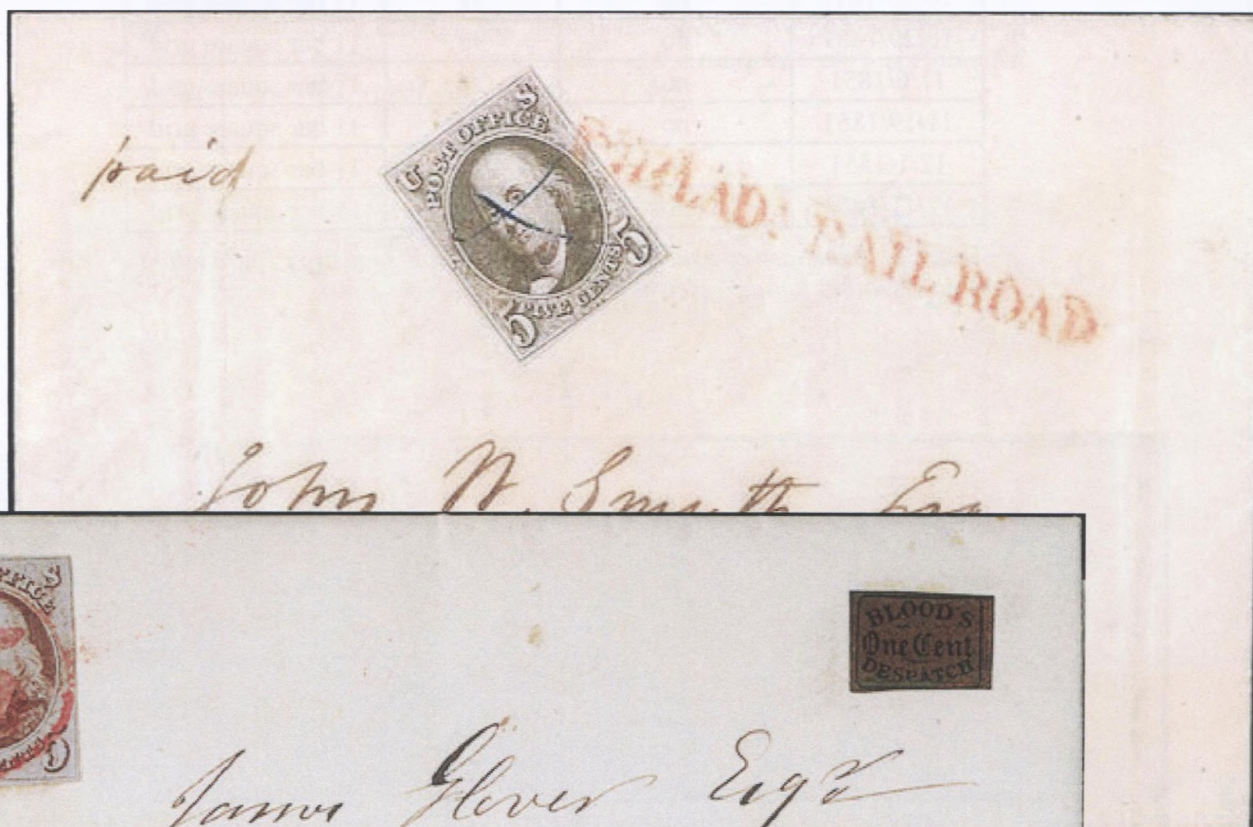 paid
U S
POST OFFICE
FIVE CENTS
5 5
PHILADA. RAIL ROAD
John W. Smyth Esq
OFFICE
S
BLOOD'S
One Cent
DESPATCH
James Glover Esqr